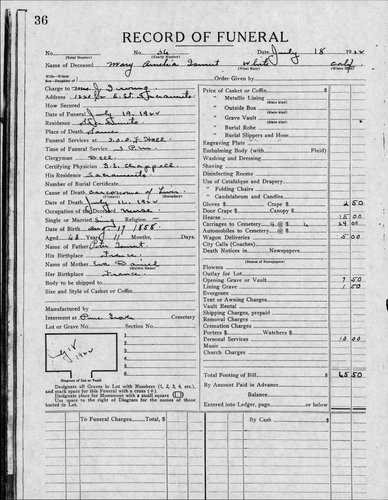 36
RECORD OF FUNERAL
No. No. 36 Date July 18 1922
(Total Number) (Yearly Number)
Name of Deceased Mary White
(What Race)
Wife—Widow
Son—Daughter of Order Given by
Charge to Mrs. J.
Address Sacramento
How Secured
Date of Funeral July 19, 1922
Residence
Place of Death Same
Funeral Services at I.O.O.F. Hall
Time of Funeral Service P.M.
Clergyman
Certifying Physician Chappell
His Residence Sacramento
Number of Burial Certificate
Cause of Death Carcinoma of Liver
(Primary) (Secondary)
Date of Death July 16, 1922
Occupation of the Deceased Nurse
Single or Married Sing Religion —
Date of Birth Aug 17 1858
Aged 63 Years 11 Months, Days.
Name of Father Peter
His Birthplace France
Name of Mother Eva Daniel
(Maiden Name)
Her Birthplace France
Body to be shipped to
Size and Style of Casket or Coffin
Manufactured by
Interment at Cemetery
Lot or Grave No. Section No.
Diagram of Lot or Vault
Designate all Graves in Lot with Numbers (1, 2, 3, 4, etc.),
and mark space for this Funeral with a cross (+).
Designate place for Monument with a small square
Use space to the right of Diagram for the names of those
buried in Lot.
1
2
3
4
5
6
Price of Casket or Coffin $
" Metallic Lining
(State Kind)
" Outside Box
(State Kind)
" Grave Vault
(State Kind)
" Burial Robe
(State Kind)
" Burial Slippers and Hose
Engraving Plate
Embalming Body (with Fluid)
Washing and Dressing
Shaving
Disinfecting Rooms
Use of Catafalque and Drapery
" Folding Chairs
" Candelabrum and Candles
Gloves $ Crape $ 2 50
Door Crape Canopy
Hearse 15 00
Carriages to Cemetery 4 @ $ 6 24 00
Automobiles to Cemetery @ $
Wagon Deliveries 5 00
City Calls (Coaches)
Death Notices in Newspapers
(Names of Newspapers)
Flowers
Outlay for Lot
Opening Grave or Vault 7 50
Lining Grave 1 50
Evergreen
Tent or Awning Charges
Vault Rental
Shipping Charges, prepaid
Removal Charges
Cremation Charges
Porters $ Watchers $
Personal Services 10 00
Music
Church Charges
Total Footing of Bill $ 65 50
By Amount Paid in Advance
Balance
Entered into Ledger, page or below.
To Funeral Charges Total, $
By Cash $